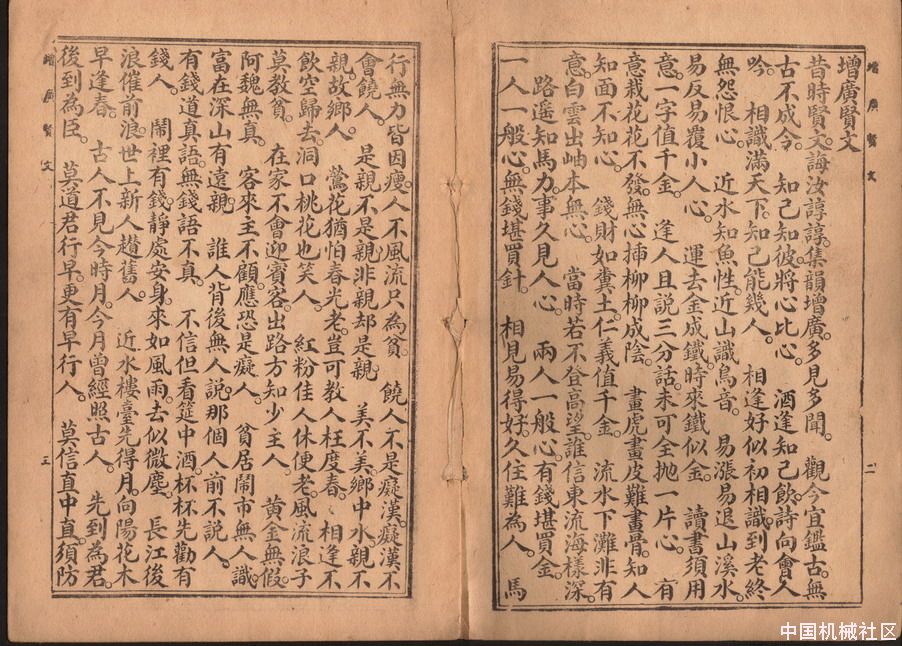 增廣賢文
二
增廣賢文
昔時賢文。誨汝諄諄。集韻增廣。多見多聞。觀今宜鑑古。無
古不成今。知己知彼。將心比心。酒逢知己飲。詩向會人
吟。相識滿天下。知己能幾人。相逢好似初相識。到老終
無怨恨心。近水知魚性。近山識鳥音。易漲易退山溪水。
易反易覆小人心。運去金成鐵。時來鐵似金。讀書須用
意。一字值千金。逢人且説三分話。未可全抛一片心。有
意栽花花不發。無心揷柳柳成陰。畫虎畫皮難畫骨。知人
知面不知心。錢財如糞土。仁義值千金。流水下灘非有
意。白雲出岫本無心。當時若不登高望。誰信東流海樣深。
路遥知馬力。事久見人心。兩人一般心。有錢堪買金。
一人一般心。無錢堪買針。相見易得好。久住難為人。馬
行無力皆因瘦。人不風流只為貧。饒人不是癡漢。癡漢不
會饒人。是親不是親。非親却是親。美不美。鄉中水。親不
親。故鄉人。鶯花猶怕春光老。豈可教人枉度春。相逢不
飲空歸去。洞口桃花也笑人。紅粉佳人休便老。風流浪子
莫教貧。在家不會迎賓客。出路方知少主人。黃金無假。
阿魏無真。客來主不顧。應恐是癡人。貧居鬧市無人識。
富在深山有遠親。誰人背後無人説。那個人前不説人。
有錢道真語。無錢語不真。不信但看筵中酒。杯杯先勸有
錢人。鬧裡有錢。靜處安身。來如風雨。去似微塵。長江後
浪催前浪。世上新人趲舊人。近水樓臺先得月。向陽花木
早逢春。古人不見今時月。今月曾經照古人。先到為君。
後到為臣。莫道君行早。更有早行人。莫信直中直。須防
增廣賢文
三
中国机械社区